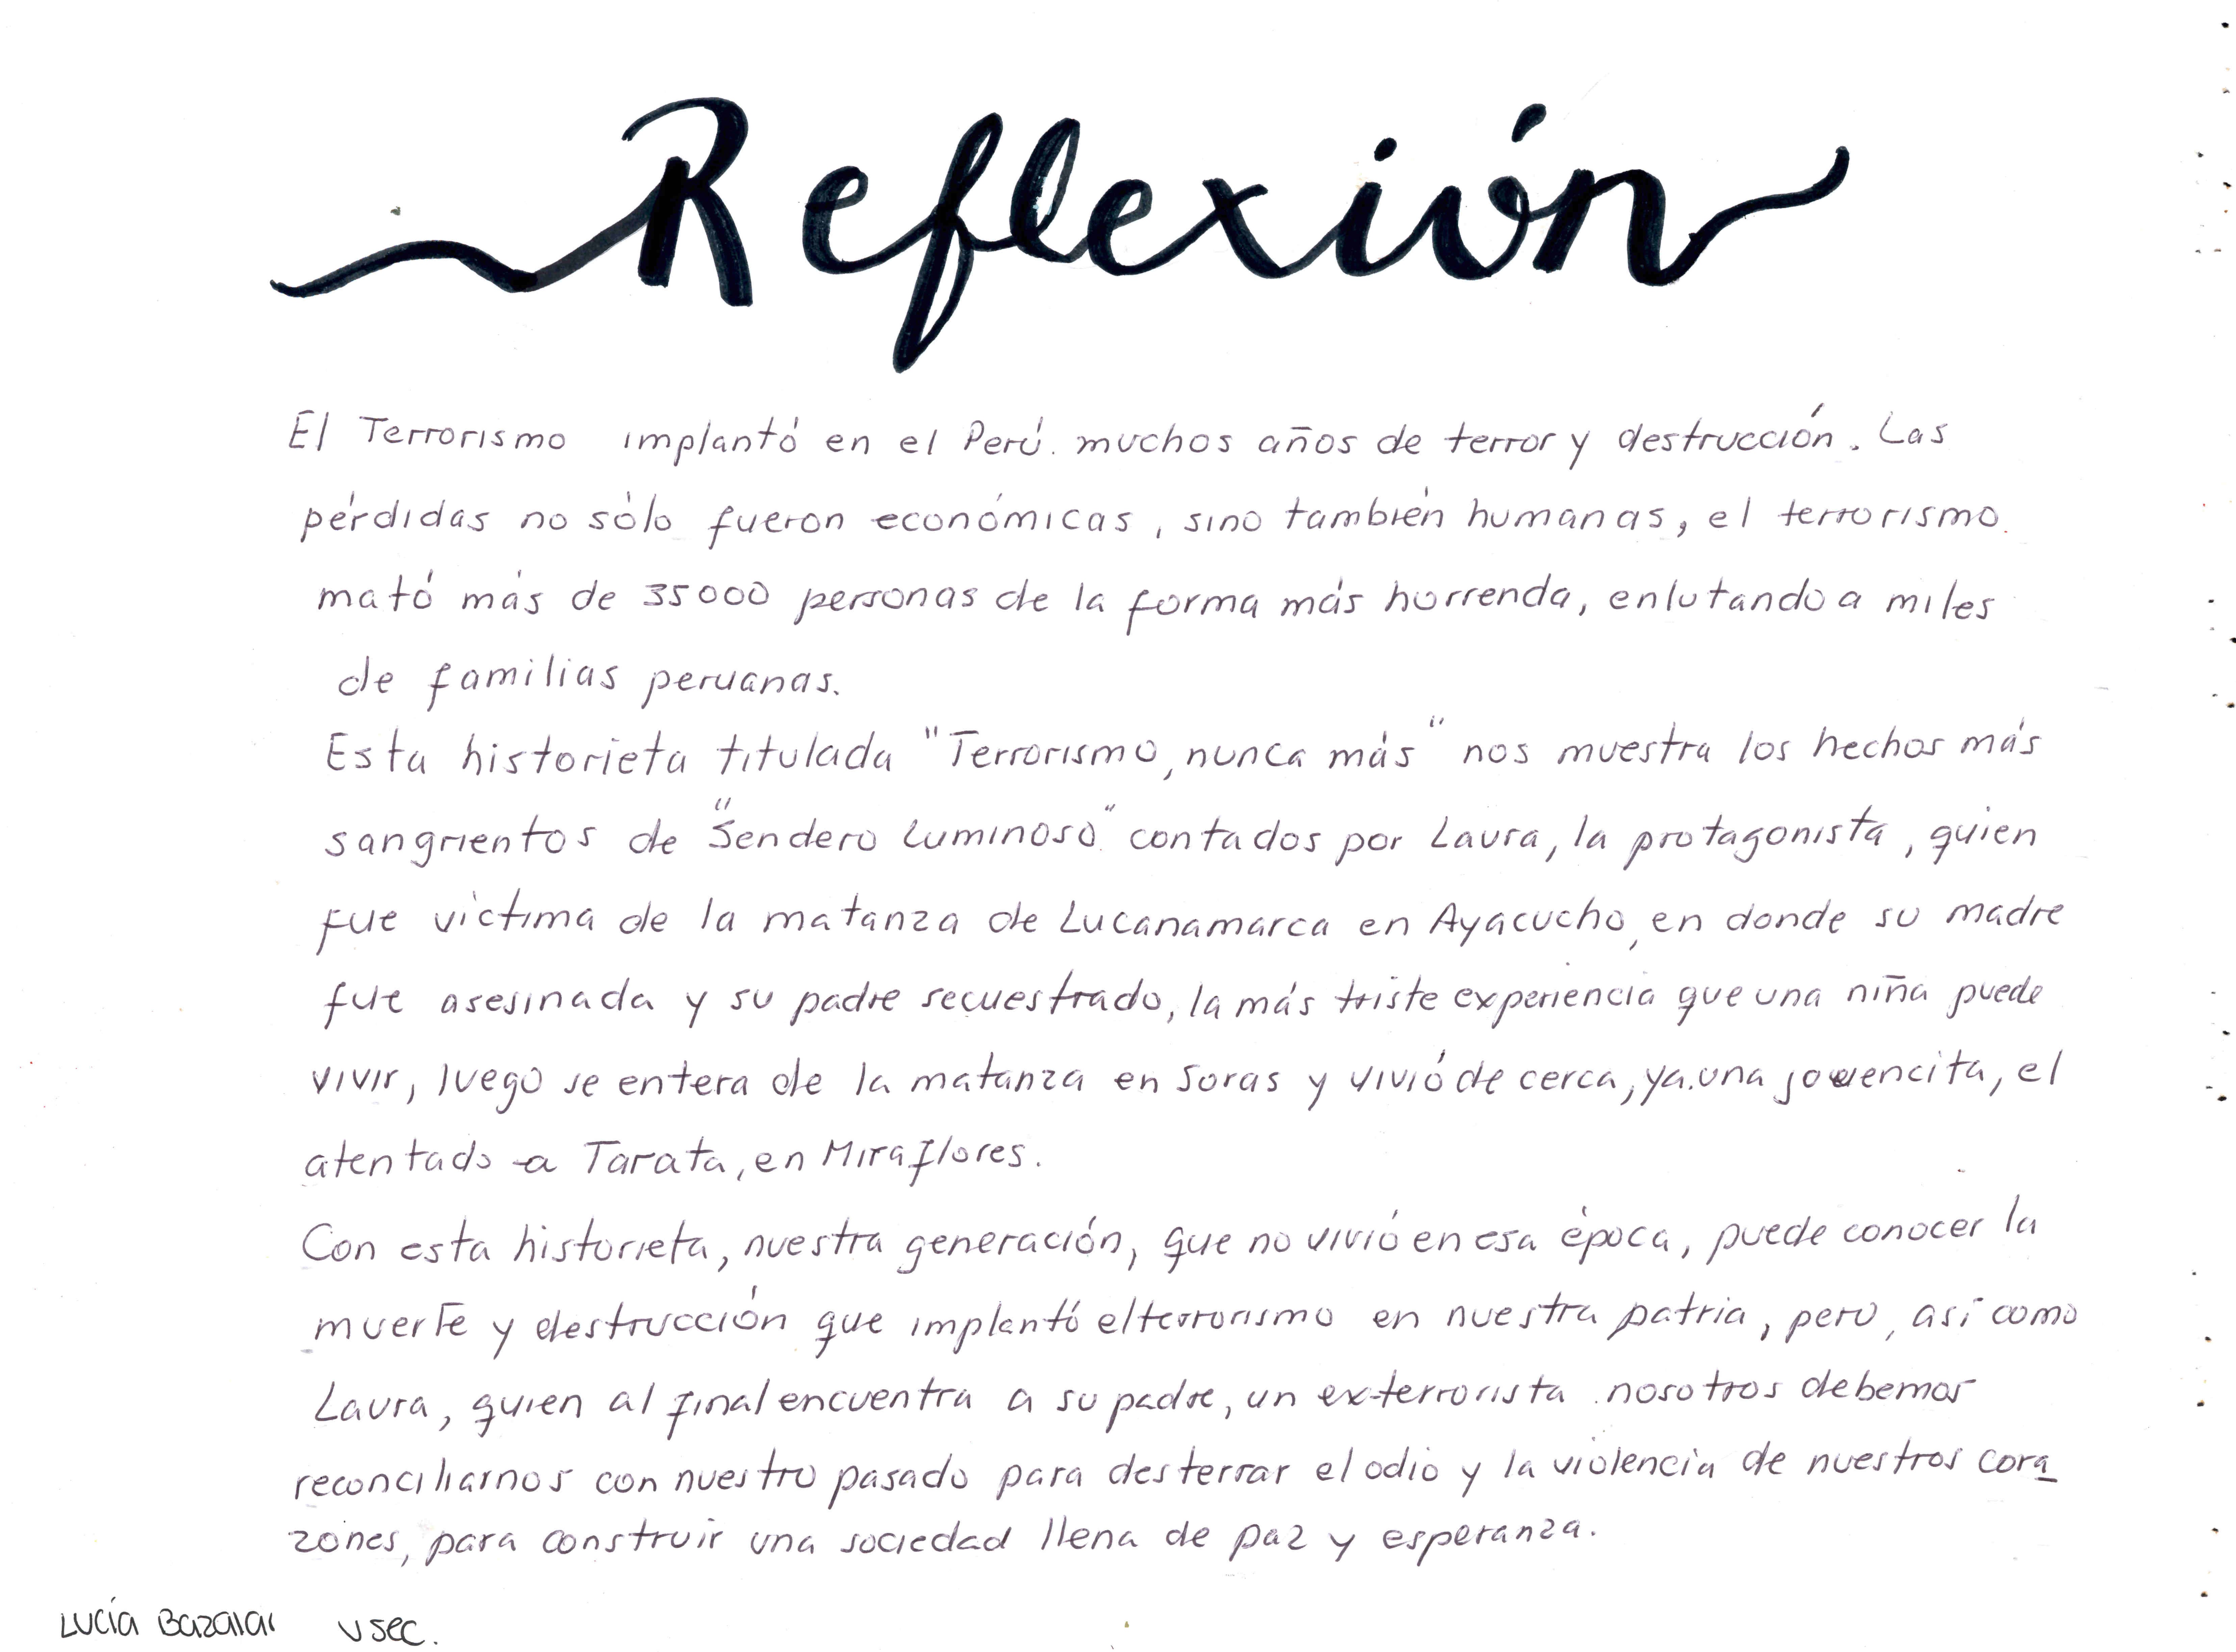 Reflexión
El Terrorismo implantó en el Perú. muchos años de terror y destrucción. Las
pérdidas no sólo fueron económicas, sino también humanas, el terrorismo.
mató más de 35000 personas de la forma más horrenda, enlutando a miles
de familias peruanas.
Esta historieta titulada "Terrorismo, nunca más" nos muestra los hechos más
sangrientos de "Sendero Luminoso" contados por Laura, la protagonista, quien
fue víctima de la matanza de Lucanamarca en Ayacucho, en donde su madre
fue asesinada y su padre secuestrado, la más triste experiencia que una niña puede
vivir, luego se entera de la matanza en Soras y vivió de cerca, ya una jovencita, el
atentado a Tarata, en Miraflores.
Con esta historieta, nuestra generación, que no vivió en esa época, puede conocer la
muerte y destrucción que implantó el terrorismo en nuestra patria, pero, así como
Laura, quien al final encuentra a su padre, un exterrorista nosotros debemos
reconciliarnos con nuestro pasado para desterrar el odio y la violencia de nuestros cora
zones, para construir una sociedad llena de paz y esperanza.
Lucía Bazalar V sec.